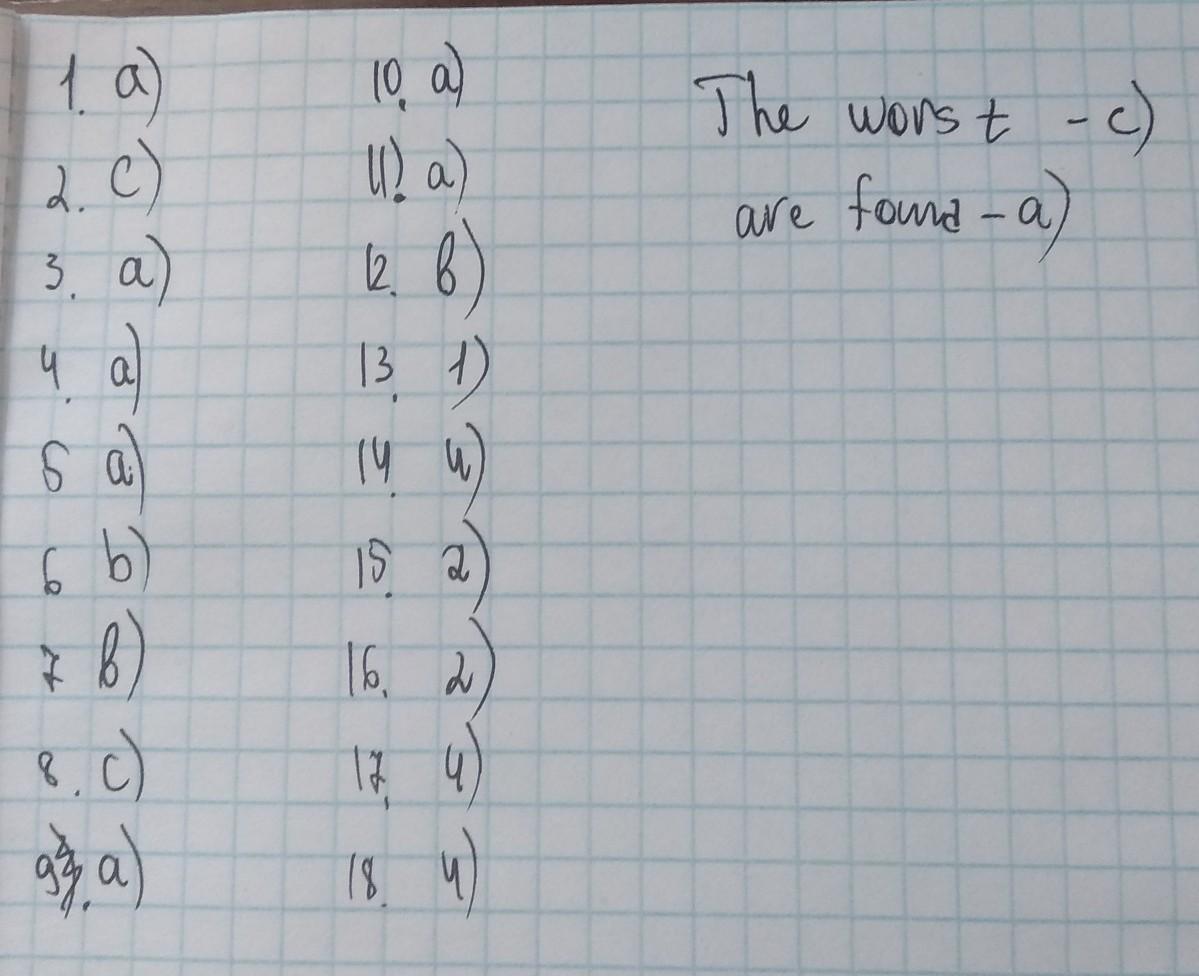 1. a)
2. c)
3. a)
4. a)
5 a)
6 b)
7 b)
8. c)
9. a)
10. a)
11. a)
12. b)
13. 1)
14. 4)
15. 2)
16. 2)
17. 4)
18. 4)
The worst - c)
are found - a)